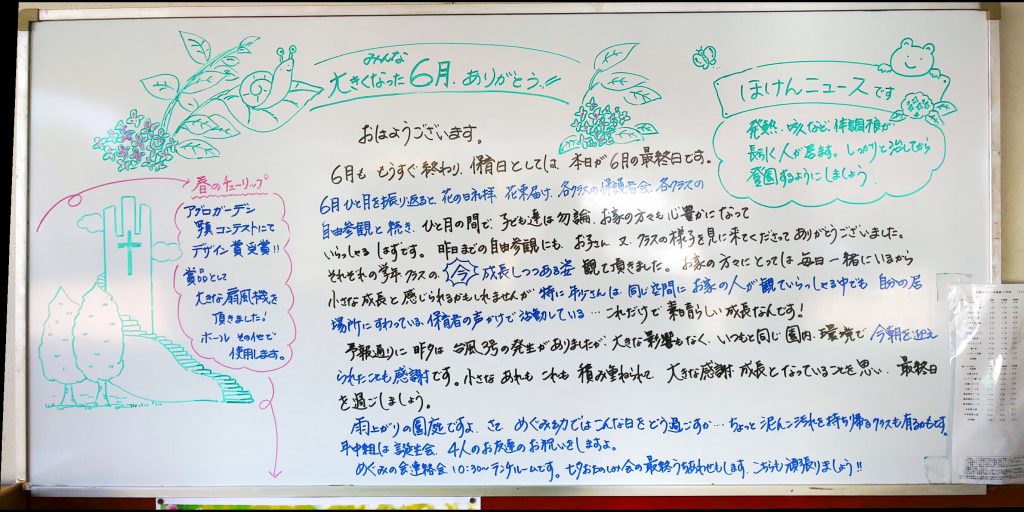 みんな
大きくなった6月、ありがとう!!
ほけんニュースです
発熱、咳など体調不良が
長引く人が居ます。しっかりと治してから
登園するようにしましょう
春のチューリップ
アグロガーデン
写真コンテストにて
デザイン賞受賞!!
賞品として
大きな扇風機を
頂きました!
ホールその他で
使用します。
おはようございます。
6月も もうすぐ終わり、保育日としては、本日が6月の最終日です。
6月ひと月を振り返ると、花の日礼拝 花束届け、各クラスの保護者会、各クラスの
自由参観と続き、ひと月の間で、子ども達は勿論、お家の方々も心豊かになって
いらっしゃるはずです。昨日までの自由参観にも、お子さん 又 クラスの様子を見に来てくださってありがとうございました。
それぞれの学年クラスの、今 成長しつつある姿 観て頂きました。お家の方々にとっては毎日一緒にいるから
小さな成長と感じられるかもしれませんが、特に年少さんは、同じ空間にお家の人が観ていらっしゃる中でも 自分の居
場所にすわっている、保育者の声がけで活動している… これだけで素晴らしい成長なんです!
予報通りに昨夕は台風3号の発生がありましたが、大きな影響もなく、いつもと同じ園内、環境で今朝を迎え
られたことも感謝です。小さな あれもこれも積み重ねられて、大きな感謝 成長となっていることを思い、最終日
を過ごしましょう。
雨上がりの園庭ですよ、さて めぐみ幼ではどんな日をどう過ごすか… ちょっと泥んこ汚れを持ち帰るクラスも有るかもです。
年中組は誕生会、4人のお友達のお祝いをしますよ。
めぐみの会連絡会 10:30〜ランチルームです。七夕おたのしみ会の最終うちあわせもします、こちらも頑張りましょう!!